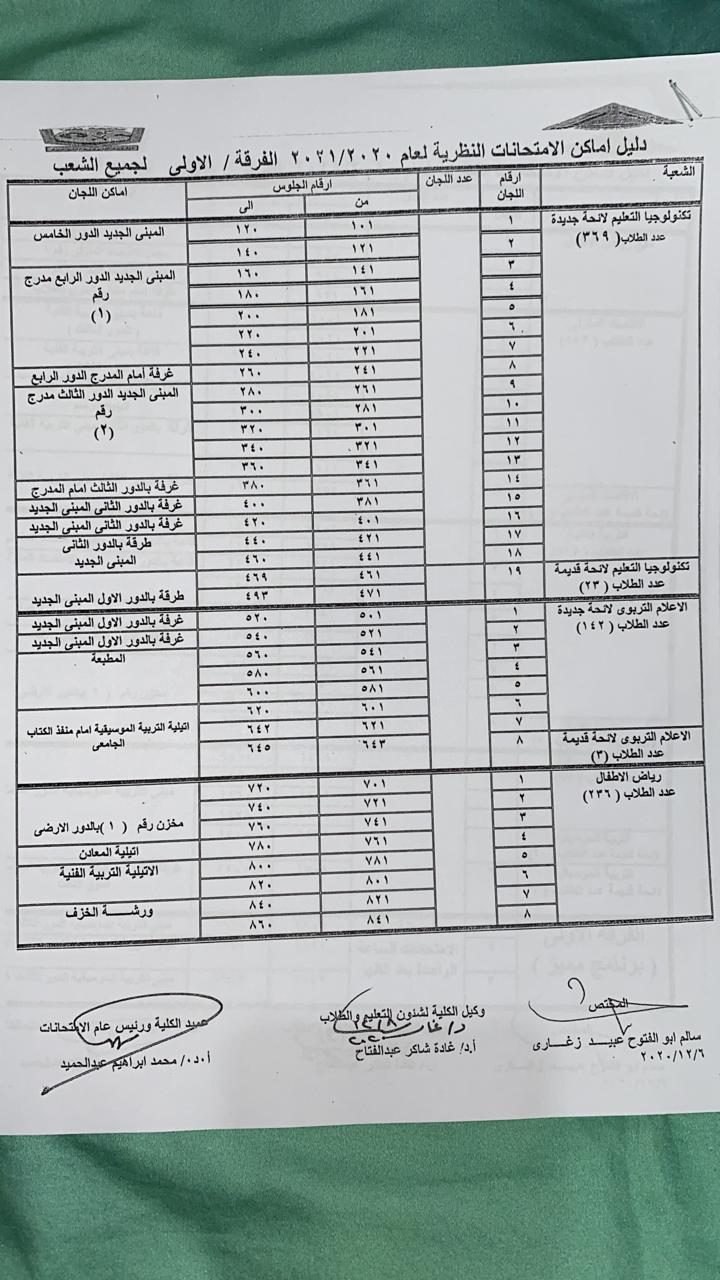 دليل اماكن الامتحانات النظرية لعام ٢٠٢١/٢٠٢٠ الفرقة / الاولى لجميع الشعب
الشعبة ارقام اللجان عدد اللجان ارقام الجلوس اماكن اللجان
من الى
تكنولوجيا التعليم لائحة جديدة ١ ١٠١ ١٢٠ المبنى الجديد الدور الخامس
عدد الطلاب( ٣٦٩) ٢ ١٢١ ١٤٠
٣ ١٤١ ١٦٠ المبنى الجديد الدور الرابع مدرج
٤ ١٦١ ١٨٠ رقم
٥ ١٨١ ٢٠٠ (١)
٦ ٢٠١ ٢٢٠
٧ ٢٢١ ٢٤٠
٨ ٢٤١ ٢٦٠ غرفة أمام المدرج الدور الرابع
٩ ٢٦١ ٢٨٠ المبنى الجديد الدور الثالث مدرج
١٠ ٢٨١ ٣٠٠ رقم
١١ ٣٠١ ٣٢٠ (٢)
١٢ ٣٢١ ٣٤٠
١٣ ٣٤١ ٣٦٠
١٤ ٣٦١ ٣٨٠ غرفة بالدور الثالث امام المدرج
١٥ ٣٨١ ٤٠٠ غرفة بالدور الثانى المبنى الجديد
١٦ ٤٠١ ٤٢٠ غرفة بالدور الثانى المبنى الجديد
١٧ ٤٢١ ٤٤٠ طرقة بالدور الثانى
١٨ ٤٤١ ٤٦٠ المبنى الجديد
تكنولوجيا التعليم لائحة قديمة ١٩ ٤٦١ ٤٦٩
عدد الطلاب (٢٣) ٤٧١ ٤٩٣ طرقة بالدور الاول المبنى الجديد
الاعلام التربوى لائحة جديدة ١ ٥٠١ ٥٢٠ غرفة بالدور الاول المبنى الجديد
عدد الطلاب (١٤٢) ٢ ٥٢١ ٥٤٠ غرفة بالدور الاول المبنى الجديد
٣ ٥٤١ ٥٦٠ المطبعة
٤ ٥٦١ ٥٨٠
٥ ٥٨١ ٦٠٠
٦ ٦٠١ ٦٢٠
٧ ٦٢١ ٦٤٢ اتيلية التربية الموسيقية امام منفذ الكتاب
الاعلام التربوى لائحة قديمة ٨ ٦٤٣ ٦٤٥ الجامعى
عدد الطلاب (٣)
رياض الاطفال ١ ٧٠١ ٧٢٠
عدد الطلاب (٢٣٦) ٢ ٧٢١ ٧٤٠
٣ ٧٤١ ٧٦٠ مخزن رقم (١) بالدور الارضى
٤ ٧٦١ ٧٨٠ اتيلية المعادن
٥ ٧٨١ ٨٠٠ الاتيلية التربية الفنية
٦ ٨٠١ ٨٢٠
٧ ٨٢١ ٨٤٠ ورشـــة الخزف
٨ ٨٤١ ٨٦٠
المختص وكيل الكلية لشئون التعليم والطلاب عميد الكلية ورئيس عام الامتحانات
سالم ابو الفتوح عبيـد زغـارى أ.د/ غادة شاكر عبدالفتاح أ.د./ محمد ابراهيم عبدالحميد
٢٠٢٠/١٢/٦